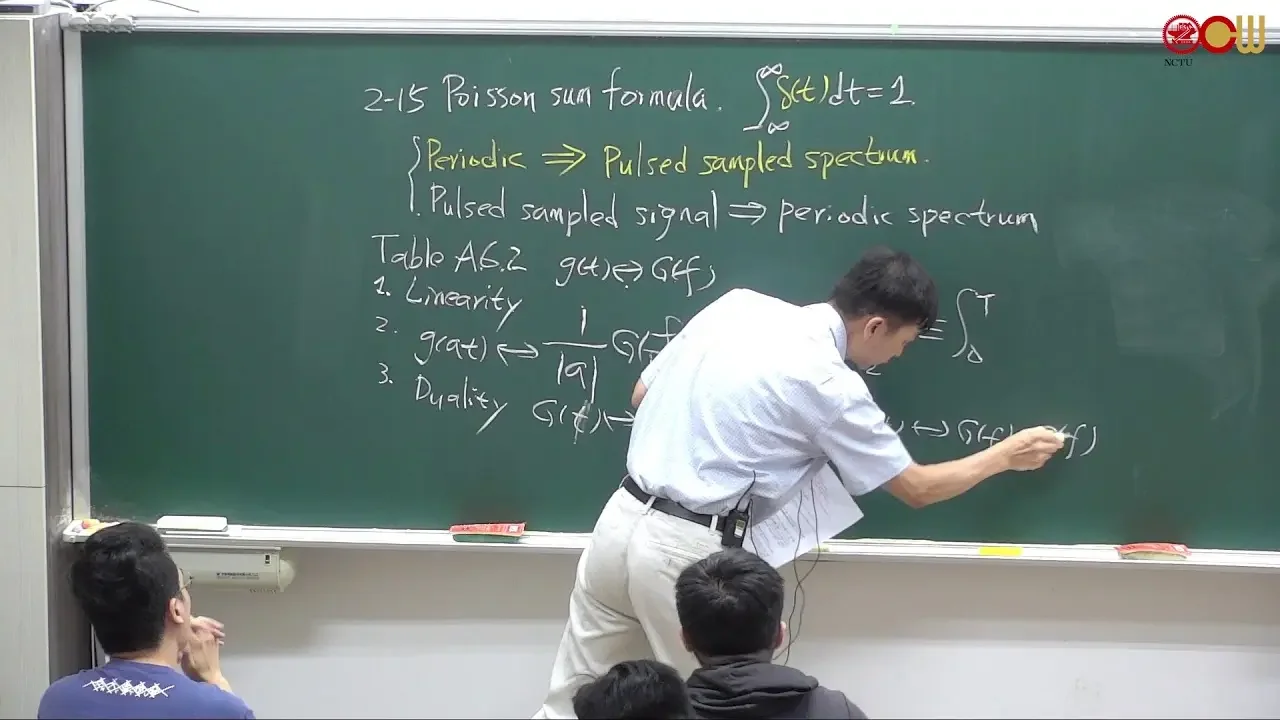 NCTU
OCW
2-15 Poisson sum formula. ∫_{-∞}^{∞} δ(t)dt = 1.
Periodic ⇒ Pulsed sampled spectrum.
Pulsed sampled signal ⇒ periodic spectrum
Table A6.2 g(t) ↔ G(f)
1. Linearity
2. g(at) ↔ 1/|a| G(f
≡ ∫_0^T
2
3. Duality G(t) ↔
) ↔ G(f) (f)